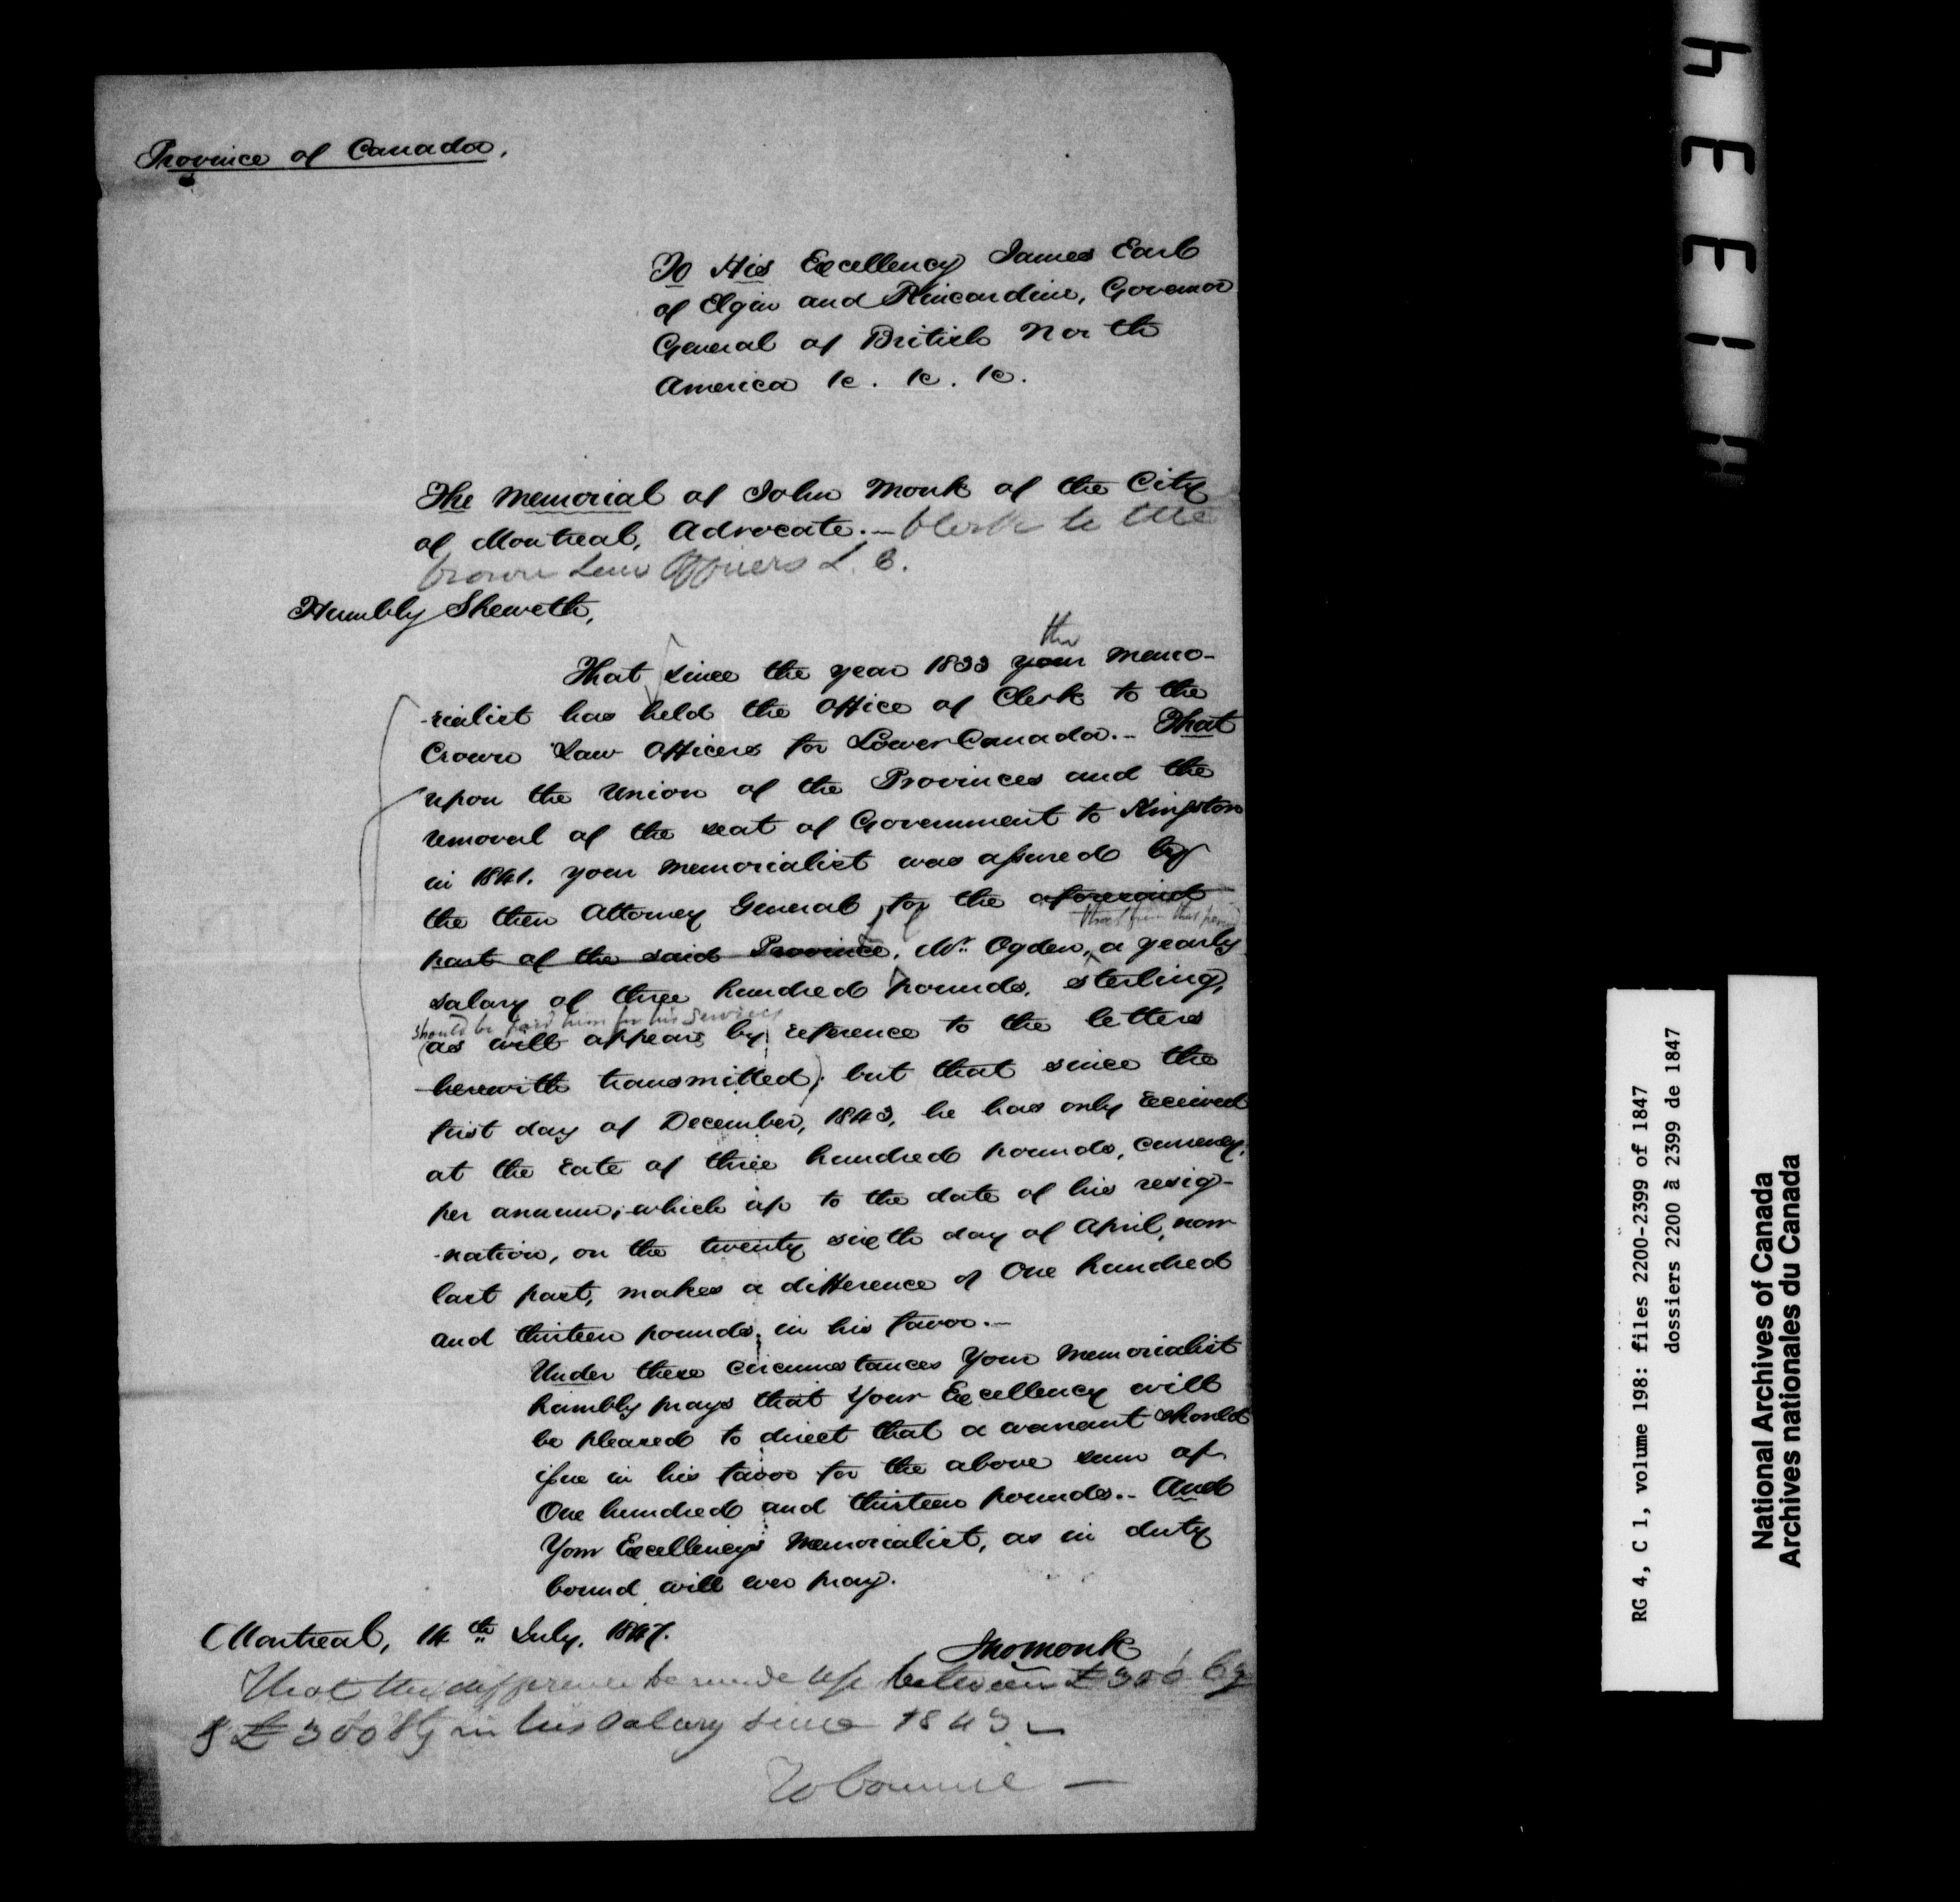 Province of Canada.
To His Excellency James Earl
of Elgin and Kincardine, Governor
General of British North
America &c. &c. &c.
The Memorial of John Monk of the City
of Montreal, Advocate.— Clerk to the
Crown Law Officers L. C.
Humbly Sheweth,
the
That since the year 1833 your memo-
-rialist has held the Office of Clerk to the
Crown Law Officers for Lower Canada.— That
upon the Union of the Provinces and the
removal of the seat of Government to Kingston
in 1841. your memorialist was assured by
the then Attorney General for the aforesaid
that from that period
part of the said Province, Mr. Ogden, a yearly
salary of three hundred pounds, sterling,
should be paid him for his services
(as will appear by reference to the letters
herewith transmitted); but that since the
first day of December, 1843, he has only received
at the rate of three hundred pounds, currency,
per annum, which up to the date of his resig-
-nation, on the twenty sixth day of April, now
last past, makes a difference of One hundred
and thirteen pounds, in his favor.—
Under these circumstances Your Memorialist
humbly prays that Your Excellency will
be pleased to direct that a warrant should
issue in his favor for the above sum of
One hundred and thirteen pounds.— And
Your Excellency's Memorialist, as in duty
bound will ever pray.
Montreal, 14th July, 1847.
Jno Monk
That the difference be made up between £300 Cy
& £300 Stg in his Salary since 1843 —
To Council —
4331 H
RG 4, C 1, volume 198: files 2200-2399 of 1847
dossiers 2200 à 2399 de 1847
National Archives of Canada
Archives nationales du Canada